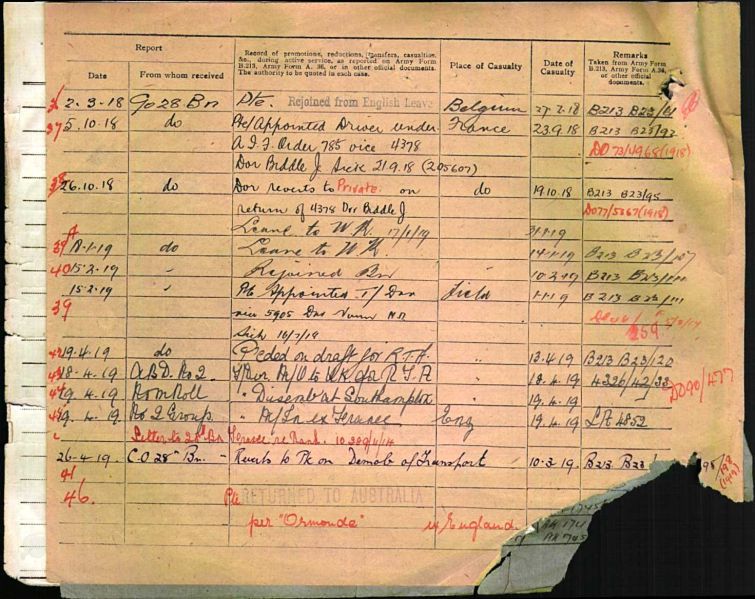 Report
Record of promotions, reductions, transfers, casualties,
&c., during active service, as reported on Army Form
B.213, Army Form A. 36, or in other official documents.
The authority to be quoted in each case.
Place of Casualty
Date of
Casualty
Remarks
Taken from Army Form
B.213, Army Form A.36,
or other official
documents.
Date
From whom received
2.3.18 Go 28 Bn Pte. Rejoined from English Leave Belgium 27.2.18 B213 B23/61
37 5.10.18 do Pte/Appointed Driver under France 23.9.18 B213 B23/92
A.I.F. Order 785 vice 4378 DO 73/4968 (1918)
Dvr Biddle J. Sick 21.9.18 (205607)
38 26.10.18 do Dvr reverts to Private on do 19.10.18 B213 B23/95
return of 4378 Dvr Biddle J DO77/5367(1918)
Leave to UK. 17/1/19
39 do Leave to UK 14.1.19 B213 B23/107
40 15.2.19 " Rejoined Bn 10.2.19 B213 B23/111
15.2.19 " Pte Appointed T/Dvr Field 1.1.19 B213 B23/111
39 vice 5905 Dvr
Sick 259
19.4.19 do Proceded on draft for R.T.A. " 13.4.19 B213 B23/120
18.4.19 A.B.D. No 2. T/Dvr M/O to UK for R.T.A " 18.4.19 4326/42/33 DO90/477
19.4.19 Nom Roll " Disemb at Southampton " 19.4.19
19.4.19 No 2 Group. " M/In ex France Eng 19.4.19 LA 4852
Letter to 28th Bn France re Rank.
26.4.19 C.O 28" Bn. " Reverts to Pte on Demob of Transport 10.3.19 B213 B23/
41
46. Pte RETURNED TO AUSTRALIA
per "Ormonde" ex England